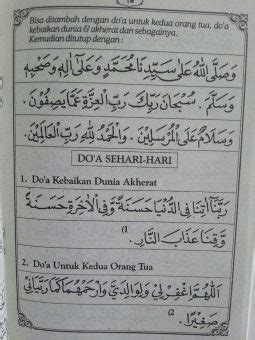 Bisa ditambah dengan do'a untuk kedua orang tua, do'a
kebaikan dunia & akherat dan sebagainya.
Kemudian ditutup dengan :
وَصَلَّى اللهُ عَلَى سَيِّدِنَا مُحَمَّدٍ وَعَلَى آلِهِ وَصَحْبِهِ
وَسَلَّمَ . سُبْحَانَ رَبِّكَ رَبِّ الْعِزَّةِ عَمَّا يَصِفُوْنَ .
وَسَلَامٌ عَلَى الْمُرْسَلِيْنَ . وَالْحَمْدُ لِلّٰهِ رَبِّ الْعَالَمِيْنَ .
DO'A SEHARI-HARI
1. Do'a Kebaikan Dunia Akherat
رَبَّنَا آتِنَا فِي الدُّنْيَا حَسَنَةً وَفِي الْآخِرَةِ حَسَنَةً
وَقِنَا عَذَابَ النَّارِ . (1
2. Do'a Untuk Kedua Orang Tua
اَللّٰهُمَّ اغْفِرْ لِيْ وَلِوَالِدَيَّ وَارْحَمْهُمَا كَمَا رَبَّيَانِيْ
صَغِيْرًا . (2